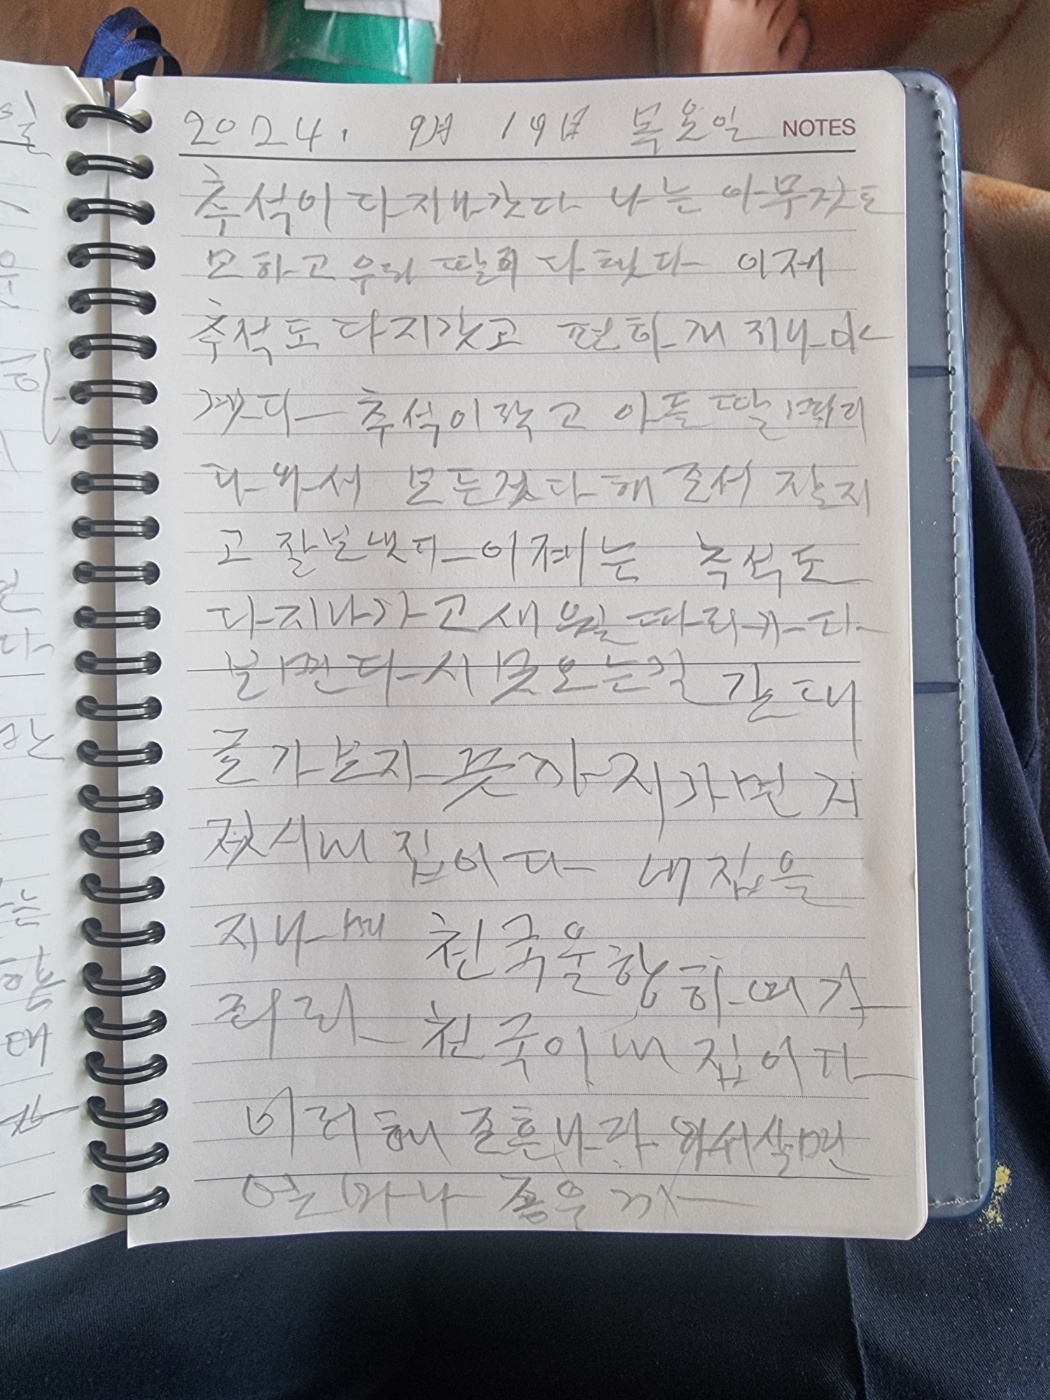 2024. 9월 19일 목요일 NOTES
추석이 다 지내갓다 나는 아무잣도
모하고 우리 딸회 다 했다 이제
추석도 다 지갓고 편하게 지나야
겟다 추석이라고 아들 딸
다 와서 모든것 다 해 줘서 잘 지
고 잘 보냇다 이제는 추석도
다 지나가고 새 월 따라 가다
보면 다시 못 오는 길 갈 때
글가보자 끗가지 가면 저
젓시 내 집이다 내 집을
지나며 천국을 향하며 가
리라 천국이 내 집이다
미리해 준흔나라 와서 살면
얼마나 좋은가